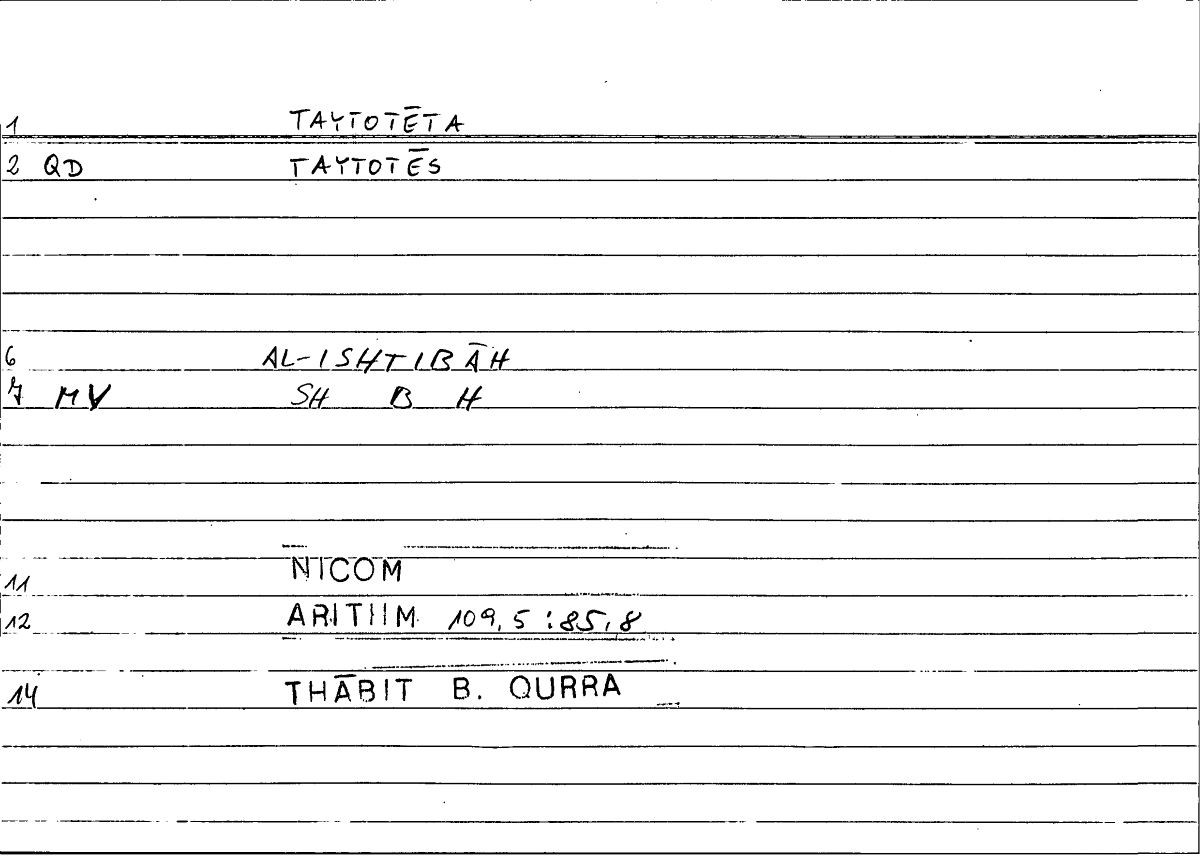 1 TAYTOTĒTA
2 QD TAYTOTĒS
6 AL-ISHTIBĀH
7 MV SH B H
11 NICOM
12 ARITHM 109,5:85,8
14 THĀBIT B. QURRA